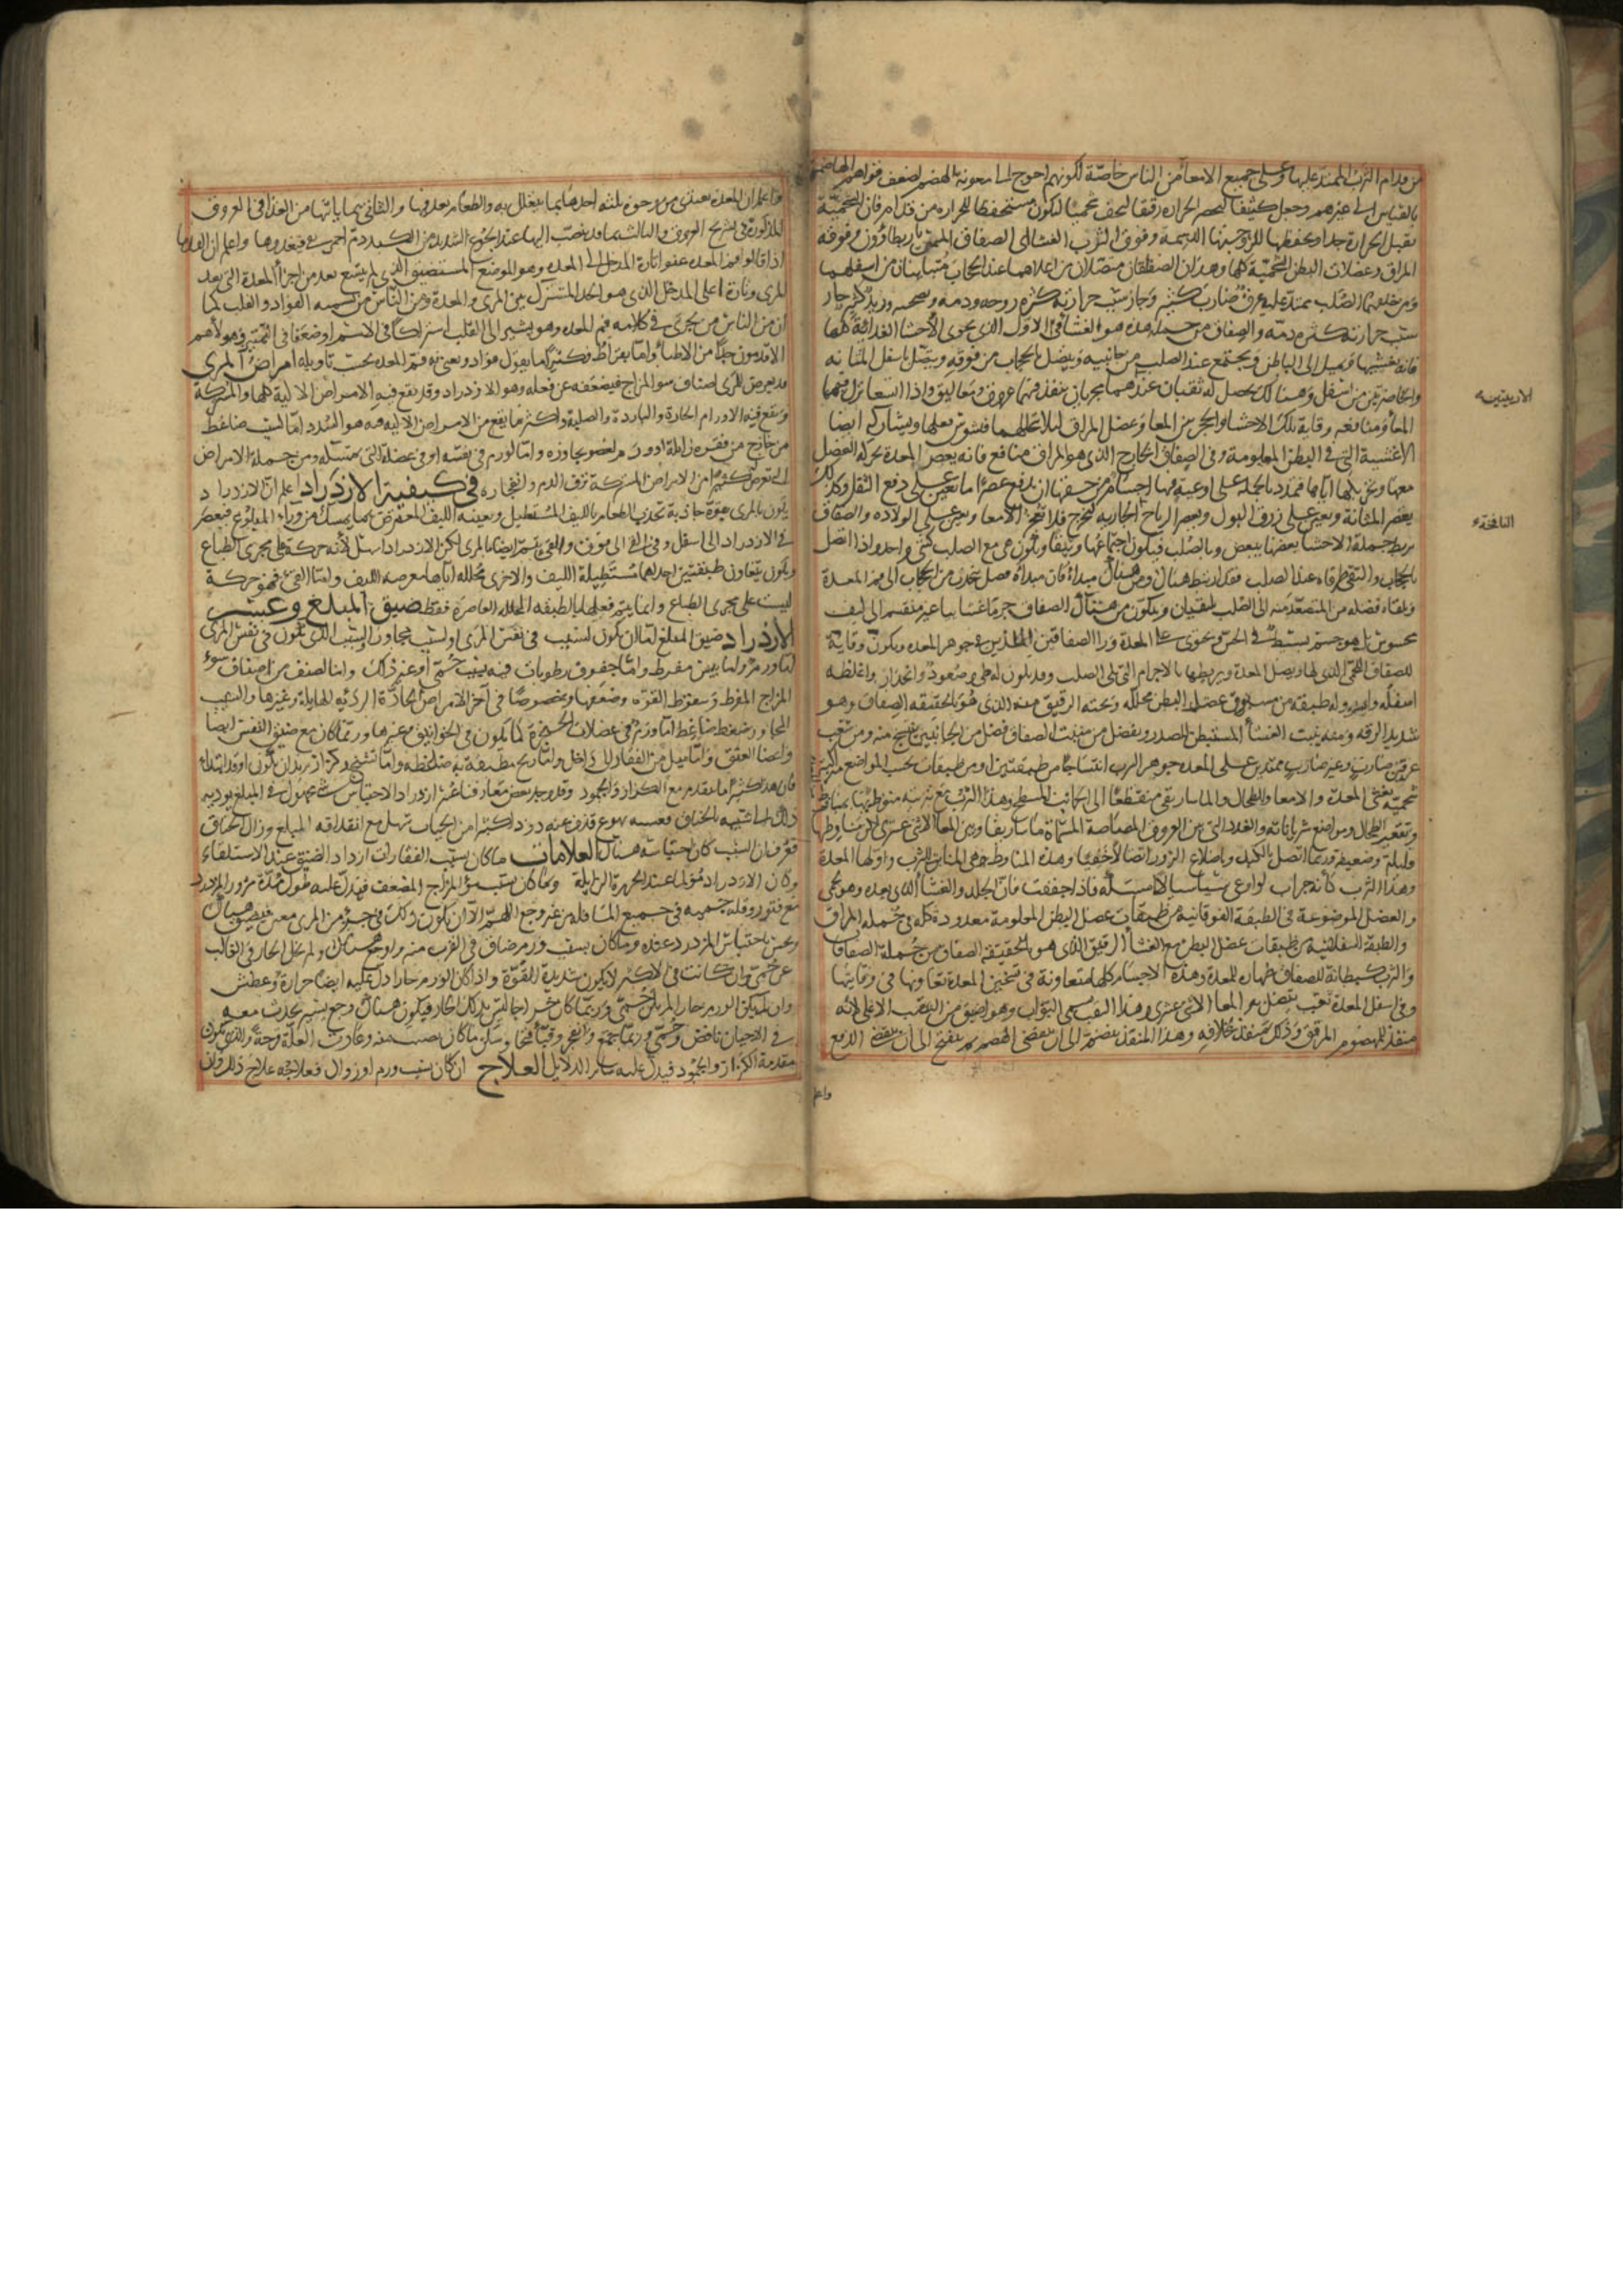 من قدام الثرب الممتد عليها وعلى جميع الامعا من الناس خاصة لكونهم احوج الى معونة الهضم لضعف قواهم الهاضمة
بالقياس الى غيرهم وجعل كثيفا ليحصر الحرارة رقيقا ليخف شحميا ليكون مستحفظا للحرارة من قدام فان الشحمية
تقبل الحرارة جدا وتحفظها للزوجيتها الدسمة وفوق الثرب الغشا الى الصفاق المسمى باريطارون وفوقه
المراق وعضلات البطن الشحمية كلها وهذان الصفاقان متصلان من اعلاهما عند الحجاب متباينان من اسفلهما
ومن خلفها الصلب ممتدا عليه عرق ضارب كبير وحار بسبب حرارته كثرة روحه ودمه ويصحبه وريد كبير حار
بسبب حرارته كثرة دمه والصفاق من جملة هذه هو الغشا الاول الذي يحوى الاحشا الغذائية كلها
فانه يغشيها ويميل الى الباطن ويجتمع عند الصلب من جانبيه ويتصل بالحجاب من فوقه ويتصل باسفل المثانة
والخاصرتين من اسفل وهنالك يحصل له ثقبان عند هما مجريان ينفذ فيهما عروق ومعاليق واذا اتسعا نزل فيهما
المعا ومنافعه وقاية تلك الاحشا والحجز بين المعا وعضل المراق لئلا يتخللها فيشوش فعلها ويشاركه ايضا
الاغشية التي في البطن المعلومة وفي الصفاق الخارج الذي هو المراق منافع فانه يعصر المعدة بحركة العضل
معها
يعصر المثانة ويعين على زرق البول ويعصر الرياح الحاربه لتخرج فلا تعجز الامعا ويعين على الولادة والصفاق
يربط جملة الاحشا بعضها ببعض وبالصلب فيكون اجتماعها وثيقا وتكون هي مع الصلب كشي واحد واذا اتصل
بالحجاب والتقى طرفاه عند الصلب فقد ارتبط هنالك ومن هنالك مبداه فان مبداه فصل ينحدر من الحجاب الى فم المعدة
ويلقاه فضلة من المتصعد منه الى الصلب يلتقيان ويتكون من هنالك الصفاق جرما غشائيا غير منقسم الى ليف
محسوس بل هو جسم بسيط في الحس ويحوى على المعدة ورا الصفاقين اللذين في جوهر المعدة ويكون وقاية
للصفاق اللحمي الذي لها ويصل المعدة ويربطها بالاجرام التي تلى الصلب وقد يكون له طي وصعود وانحدار واغلظه
اسفله
شديد الرقة ومنه ينبت الغشا المستبطن للصدر ويفضل من منبت الصفاق فضل من الجانبين ينتج منه ومن شعب
عرقين ضارب وغير ضارب ممتدين على المعدة جوهر الثرب انتساجا من طبقتين او من طبقات بحسب المواضع
شحمية يغشى المعدة والامعا والطحال والماساريقى منقطعا الى الجانب المسطح وهذا الثرب
وتقعير الطحال ومواضع شريانات والغدد التي بين العروق المصاصة المسماة ماساريقا وبين المعا الاثنى عشرى لكن مناوطها
قليلة وضعيفة وربما اتصل بالكبد وباضلاع الزور اتصالا خفيا وهذه المناوط هي المنابت للثرب واولها المعدة
وهذا الثرب كانه جراب لو اوعى شيا سيالا امسكه فاذا حققت فان الجلد والغشا الذي بعده وهو لحمى
والعضل الموضوعة في الطبقة الفوقانية من طبقات عضل البطن المعلومة معدودة كله في جملة المراق
والطبقة السفلانية من طبقات عضل البطن مع الغشا الرقيق الذي هو بالحقيقة الصفاق من جملة الصفاق
والثرب كبطانة للصفاق ظهارة للمعدة وهذه الاجسام كلها متعاونة في تسخين المعدة تعاونها في وقايتها
وفي اسفل المعدة ثقب يتصل به المعا الاثنى عشرى وهذا الثقب يسمى البواب وهو اضيق من الثقب الاعلى لانه
منفذ للمهضوم المرقق وذلك منفذ لخلافه وهذا المنفذ ينضم الى ان ينقضى الهضم ثم ينفتح الى ان ينقضى الدفع
واعلم
الاربيتين
النافخة
واعلم ان المعدة تغتذى من وجوه ثلثة احدها بما يتغلل به والطعام معد فيها والثاني بما ياتيها من الغذا في العروق
المذكورة في تشريح العروق والثالث بما قد ينصب اليها عند الجوع الشديد من الكبد دم احمر نقى فيغذوها واعلم ان القدما
اذا قالوا فم المعدة عنوا تارة المدخل الى المعدة وهو الموضع المستضيق الذي لم يتسع بعد من اجزا المعدة التي بعد
المرى وتارة اعلى المدخل الذي هو الحد المشترك بين المرى والمعدة ومن الناس من يسميه الفواد والقلب كما
ان من الناس من يجرى في كلامه فم المعدة وهو يشير الى القلب اشتراكا في الاسم او ضعفا في التمييز وهولا هم
الاقدمون جدا من الاطبا واما بقراط فكثيرا ما يقول فواد ويعنى به فم المعدة بحسب تاويله امراض المرى
قد يعرض للمرى اصناف سو المزاج فيضعفه عن فعله وهو الازدراد وقد تقع فيه الامراض الالية كلها والمشتركة
وتقع فيه الاورام الحارة والباردة والصلبة واكثر ما يقع من الامراض الالية فيه هو السدد اما لسبب ضاغط
من خارج من فقرة زائلة او ورم لعضو يجاوره واما لورم في نفسه او في عضلة التي تمسكه ومن جملة الامراض
التي تعرض له كثيرا من الامراض المشتركة نزف الدم وانفجاره في كيفية الازدراد اعلم ان الازدراد
يكون بالمرى بقوة جاذبة تجذب الطعام بالليف المستطيل ويعينه الليف المعترض بما يمسك من وراء المبلوع فيعصر
في الازدراد الى اسفل وفي القى الى فوق والقى يتم ايضا بالمرى لكن الازدراد اسهل لانه حركة على مجرى الطباع
ويكون بتعاون طبقتين احداهما مستطيلة الليف والاخرى مجللة اياها معرضة الليف واما القى فهو حركة
ليست على مجرى الطباع وانما يتم فعلها بالطبقة المجللة العاصرة فقط ضيق المبلع وعسر
الازدراد ضيق المبلع اما ان يكون لسبب في نفس المرى او لسبب مجاور والسبب الذي يكون في نفس المرى
اما ورم واما يبس مفرط واما جفوف رطوبات فيه بسبب حمى او غير ذلك واما لصنف من اصناف سوء
المزاج المفرط وسقوط القوة وضعفها وخصوصا في اخر الامراض الحادة الرديه الهايلة وغيرها والسبب
المجاور ضغط ضاغط اما ورم في عضلات الحنجرة كما يكون في الخوانيق وغيرها وربما كان مع ضيق النفس ايضا
واعضا العنق واما ميل من الفقار الى داخل واما ريح مطيفة به ضاغطة واما تشنج وكزاز يريد ان يكون او قد ابتدا
فان هذا كثيرا ما يتقدم مع الكزاز والجمود وقد وجد بعض معارفنا عسر ازدراد لاحتباس شى مجهول في المبلع يوديه
ذلك الى شبيه بالخناق فغشيه تهوع قذف عنه دودا كثيرا من الحيات سهل مع انقذافه المبلع وزال الخناق
فعرف ان السبب كان احتباسه هنالك العلامات ما كان بسبب الفقارات ازداد الضيق عند الاستلقاء
وكان الازدراد مؤلما عند الخرزة الزايلة وما كان بسبب سو المزاج المضعف فيدل عليه طول مدة مرور المزدرد
مع فتور وقلة حمية في جميع المسافة من غير وجع اللهم الا ان يكون ذلك في جزء من المرى معين فيضيق هنالك
ويحس باحتباس المزدرد عنده وما كان بسبب ورم ضاق في القرب منه واوجع هنالك ولم يخل الحار في الغالب
عن حمى وان كانت في الاكثر لا يكون شديدة القوة واذا كان الورم حارا دل عليه ايضا حرارة وعطش
وان لم يكن الورم حارا لم يكن حمى وربما كان خراجا ليس بذلك الحار فيكون هنالك وجع يسير يحدث معه
في الاحيان نافض وحمى وربما جمع وانفجر وقيا قيحا وسكن ما كان يصيب منه وعادت العلة قرحة والذي يكون
مقدمة الكزاز والجمود فيدل عليه سائر الدلايل العلاج ان كان بسبب ورم او زوال فعلاجه علاج ذلك وان